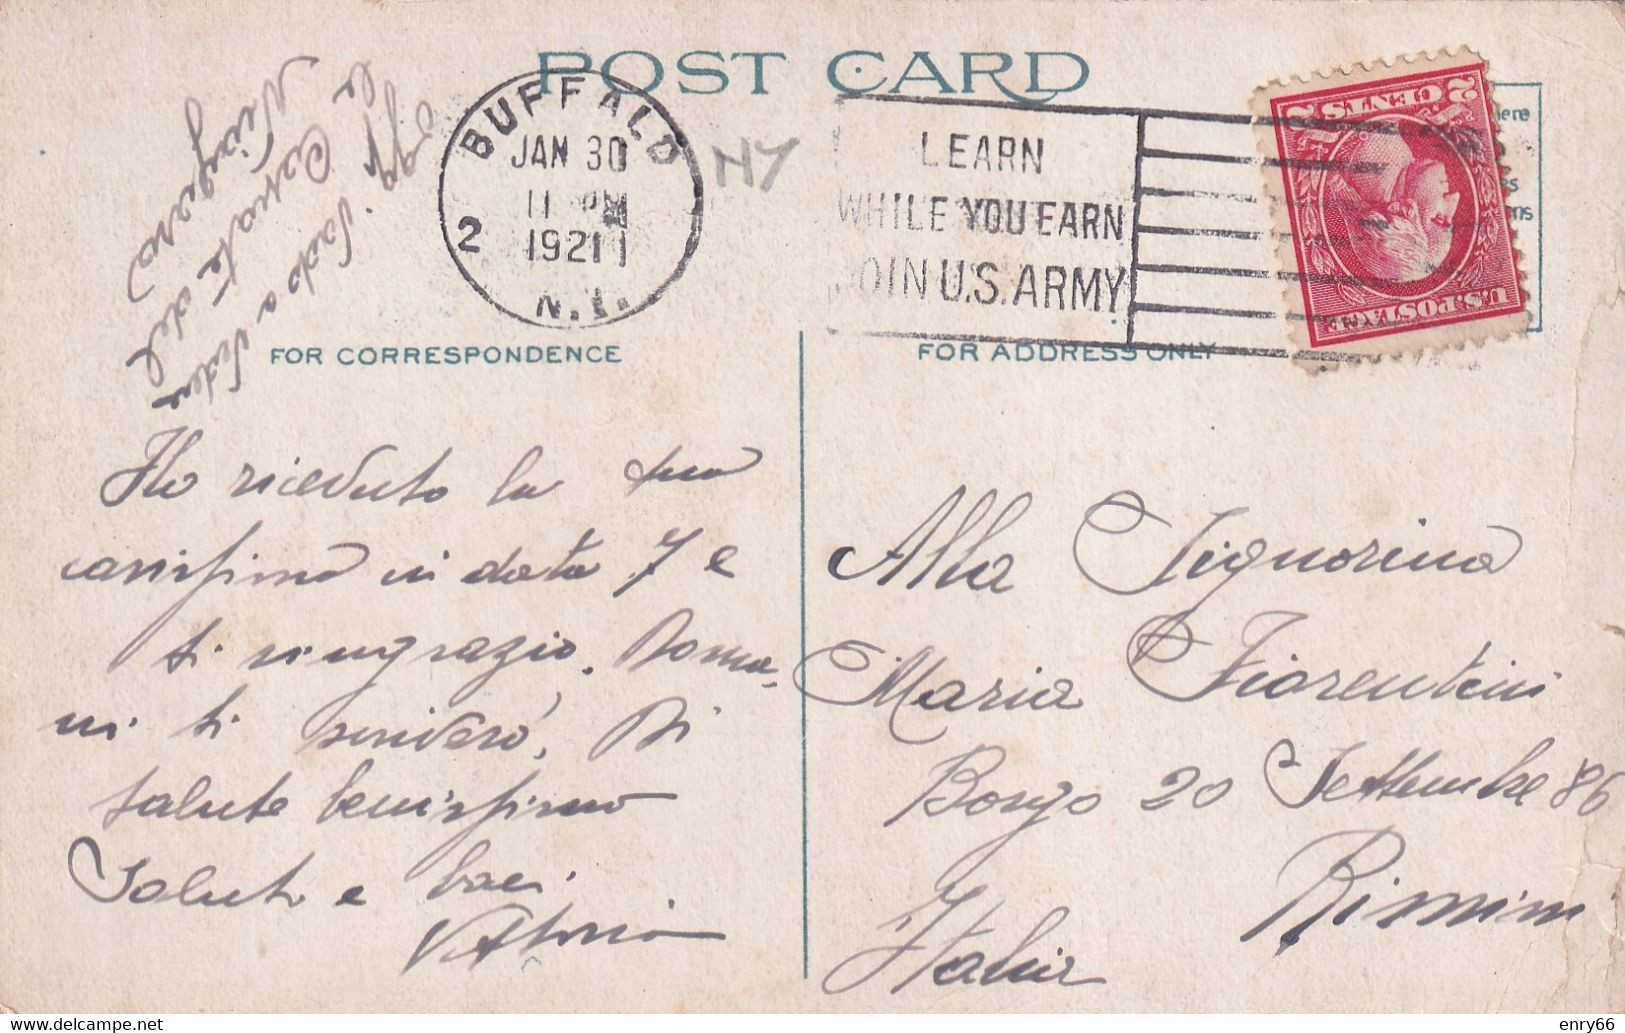 POST CARD
BUFFALO
JAN 30
11 PM
1921
2
N.Y.
NY
LEARN
WHILE YOU EARN
JOIN U.S. ARMY
2 CENTS 2
U.S. POSTAGE
Vado a veder
le Cascate del
Niagara
FOR CORRESPONDENCE
FOR ADDRESS ONLY
Ho ricevuto la tua
carissima in data 7 e
ti ringrazio. Doma-
ni ti scriverò. Di
salute benissimo
Saluti e baci
Vittorio
Alla Signorina
Maria Fiorentini
Borgo 20 Settembre 86
Rimini
Italia
enry66